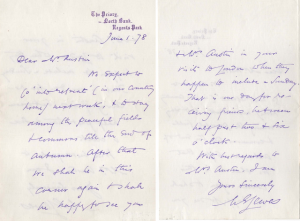 The Priory,
North Bank,
Regents Park
June 1. 78
Dear Mr Austin
We expect to
go into retreat (in our country
home) next week, & to stay
among the peaceful fields
& commons till the end of
autumn. After that
we shall be in this
corner again & shall
be happy to see you
& Mrs Austin in your
visits to London when they
happen to include a Sunday.
That is our day for re-
ceiving friends, between
half past two & six
o'clock.
With best regards to
Mrs Austin, I am
Yours Sincerely